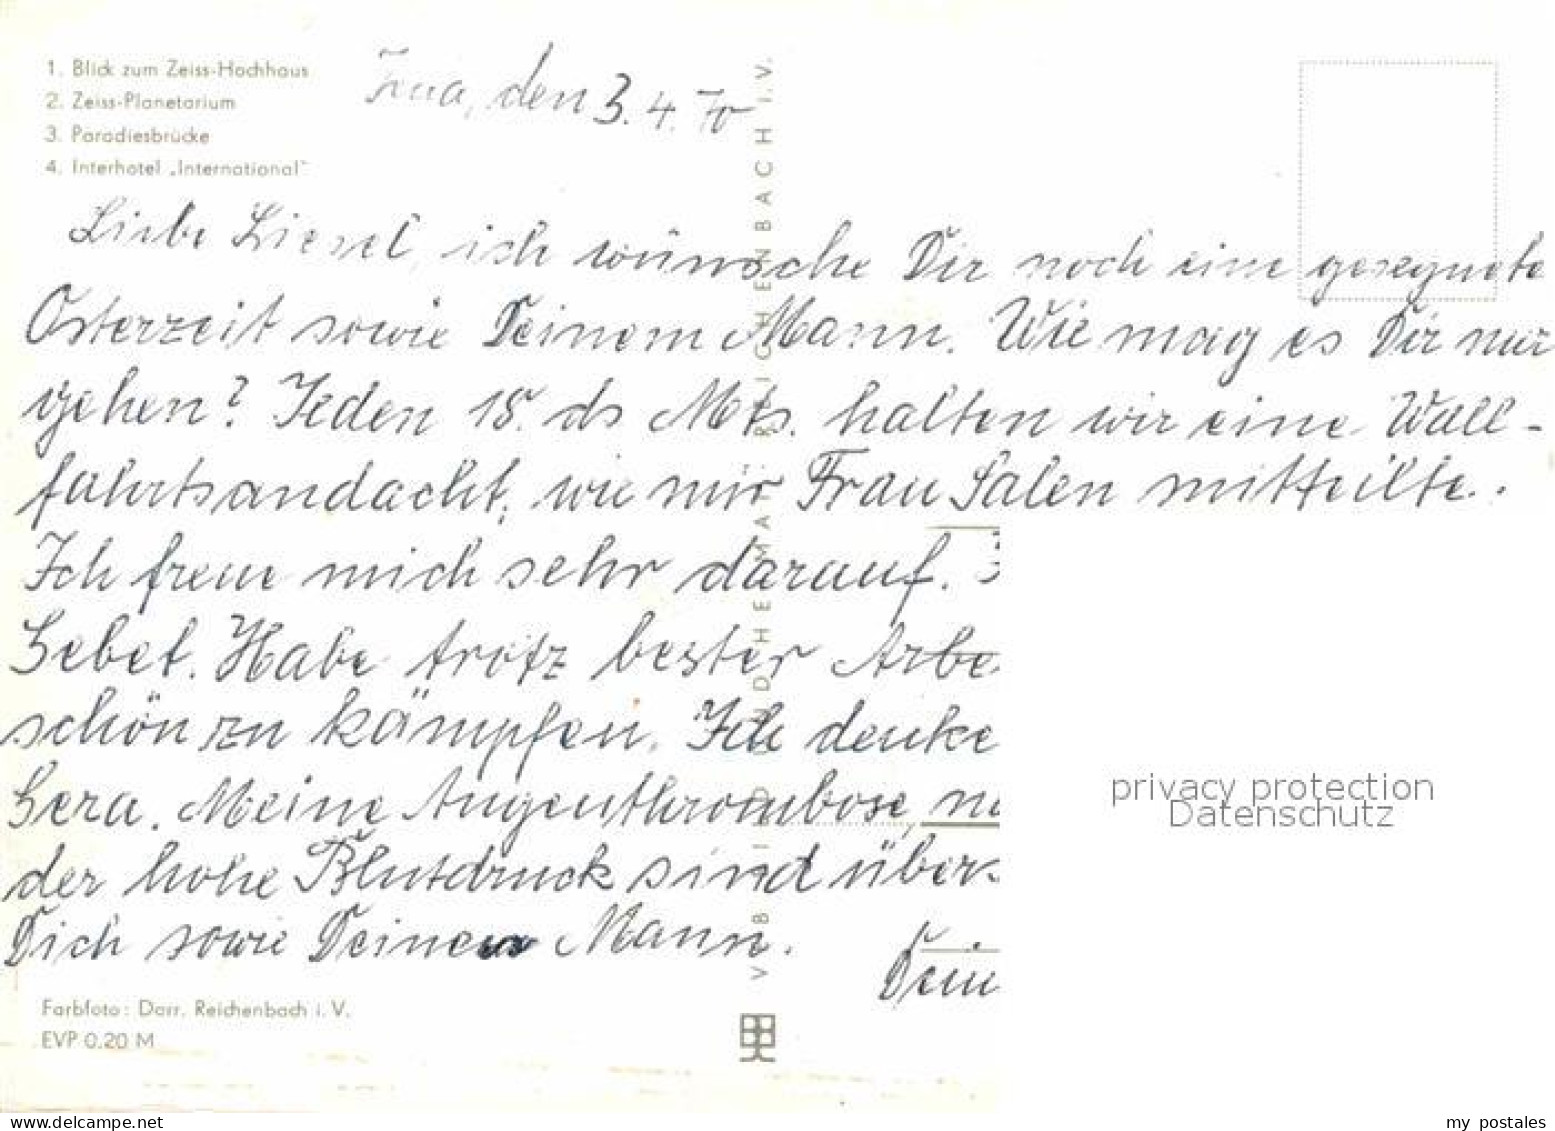 1. Blick zum Zeiss-Hochhaus
2. Zeiss-Planetarium
3. Paradiesbrücke
4. Interhotel „International"
Jena, den 3. 4. 70
Liebe Liesel, ich wünsche Dir noch eine gesegnete
Osterzeit sowie Deinem Mann. Wie mag es Dir nur
gehen? Jeden 18. ds Mts. halten wir eine Wall-
fahrtsandacht, wie mir Frau Salen mitteilte.
Ich freue mich sehr darauf.
Gebet. Habe trotz bester Arbe
schön zu kämpfen. Ich denke
Gera. Meine Augenthrombose,
der hohe Blutdruck sind übers
Dich sowie Deinen Mann.
Dein
VEB BILD UND HEIMAT REICHENBACH I.V.
Farbfoto: Darr, Reichenbach i. V.
EVP 0.20 M
privacy protection
Datenschutz
www.delcampe.net
my_postales